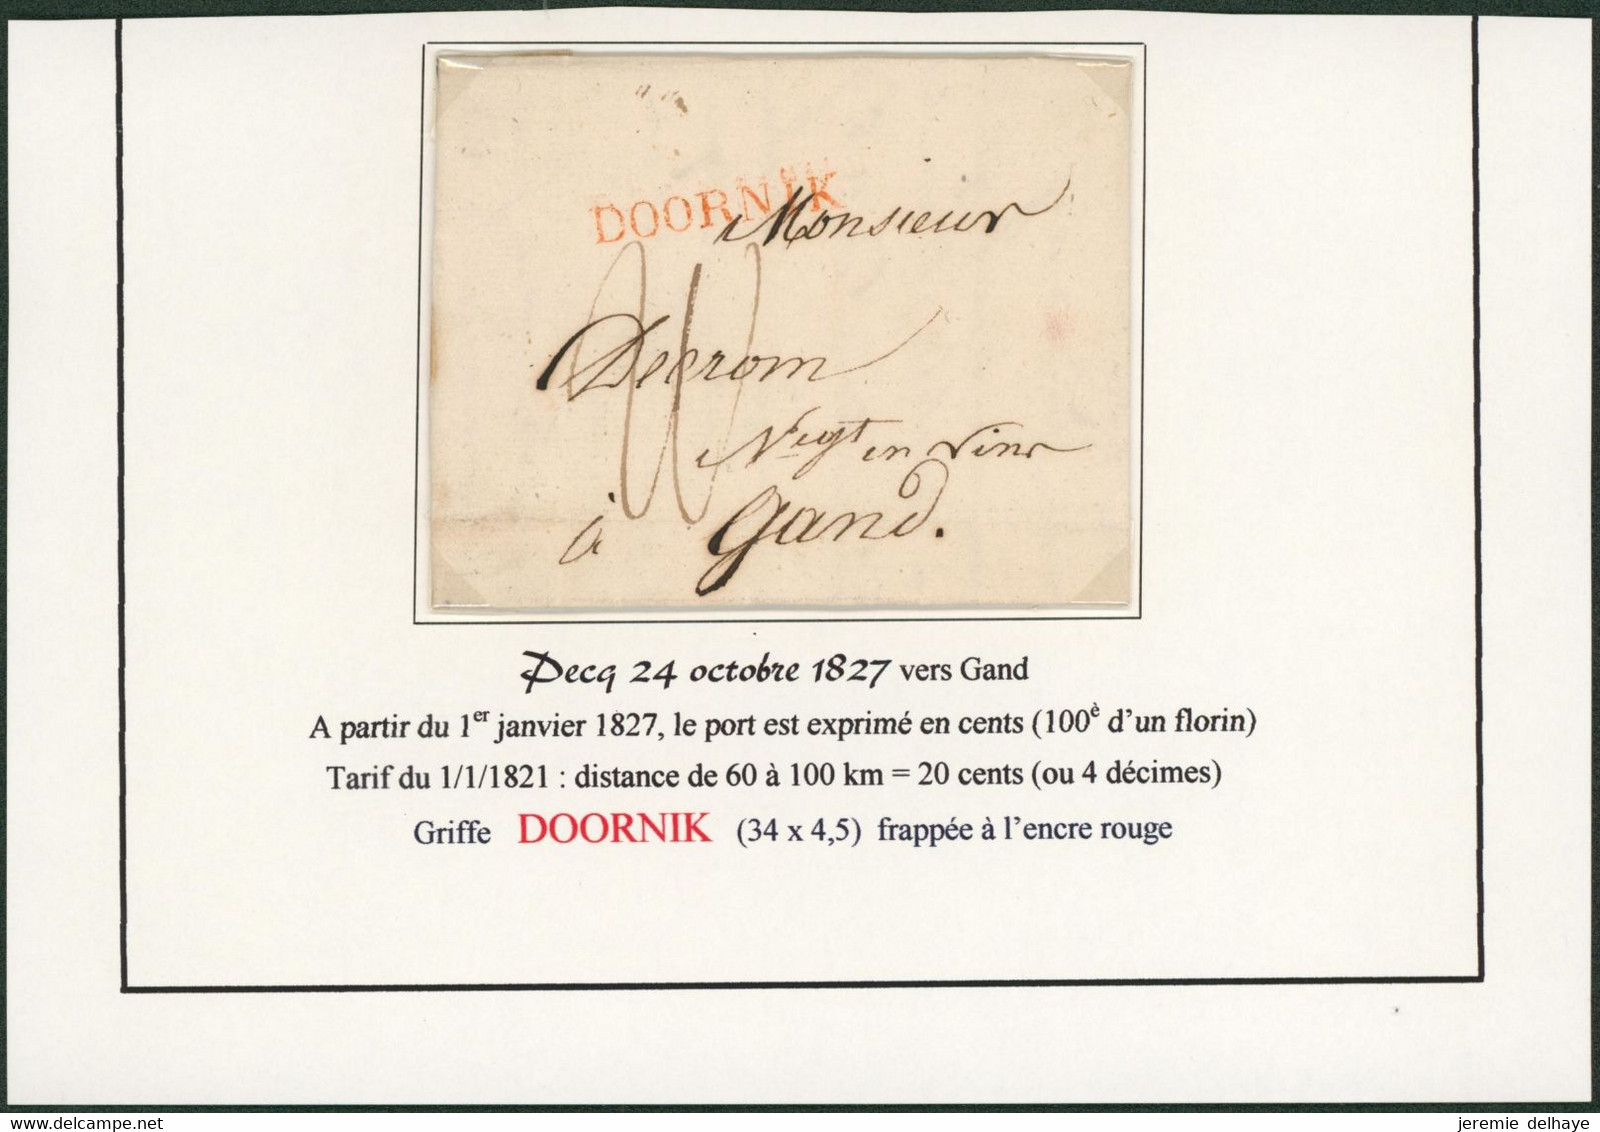 DOORNIK
Monsieur
Decrom
Negt en vins
à Gand.
Decq 24 octobre 1827 vers Gand
A partir du 1er janvier 1827, le port est exprimé en cents (100è d'un florin)
Tarif du 1/1/1821 : distance de 60 à 100 km = 20 cents (ou 4 décimes)
Griffe DOORNIK (34 x 4,5) frappée à l'encre rouge
delcampe.net
jeremie delhaye